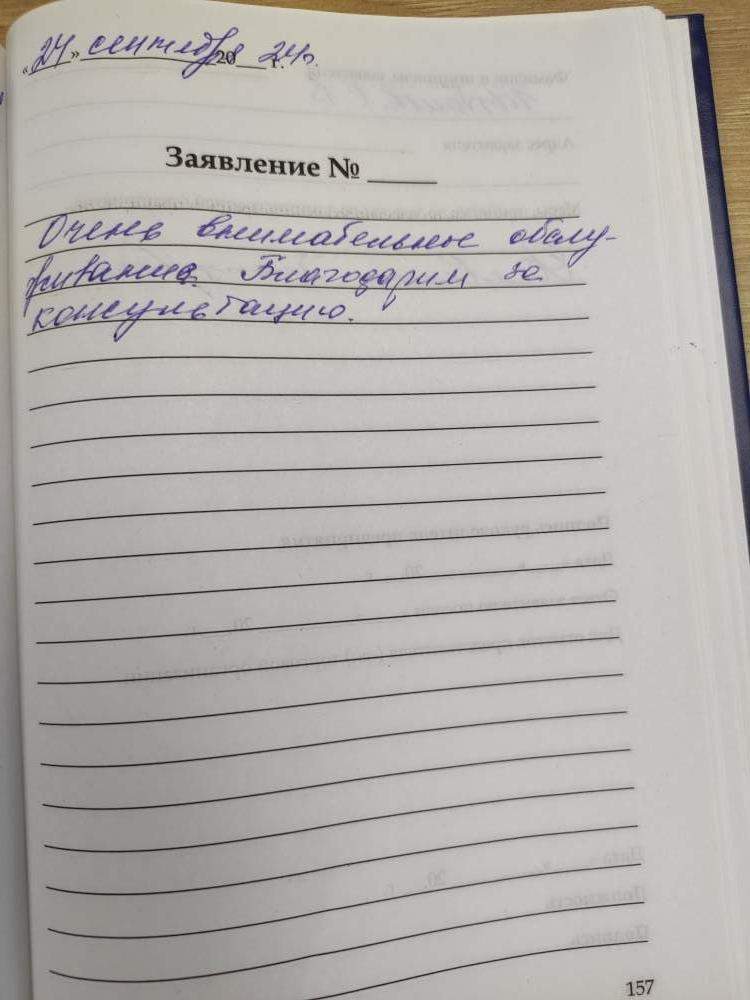 «24» сентября 2024г.
Заявление № ____
Очень внимательное обслу-
живание. Благодарим за
консультацию.
157